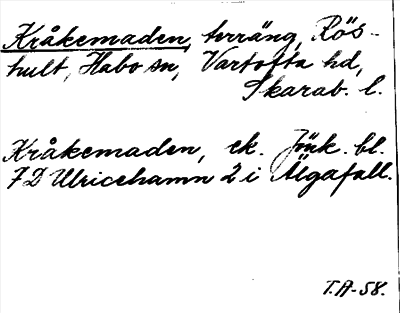 Kråkemaden, terräng, Rös-
hult, Habo sn, Vartofta hd,
Skarab. l.
Kråkemaden, ek. Jönk. bl.
7 D Ulricehamn 2 i Älgafall.
T.A-58.